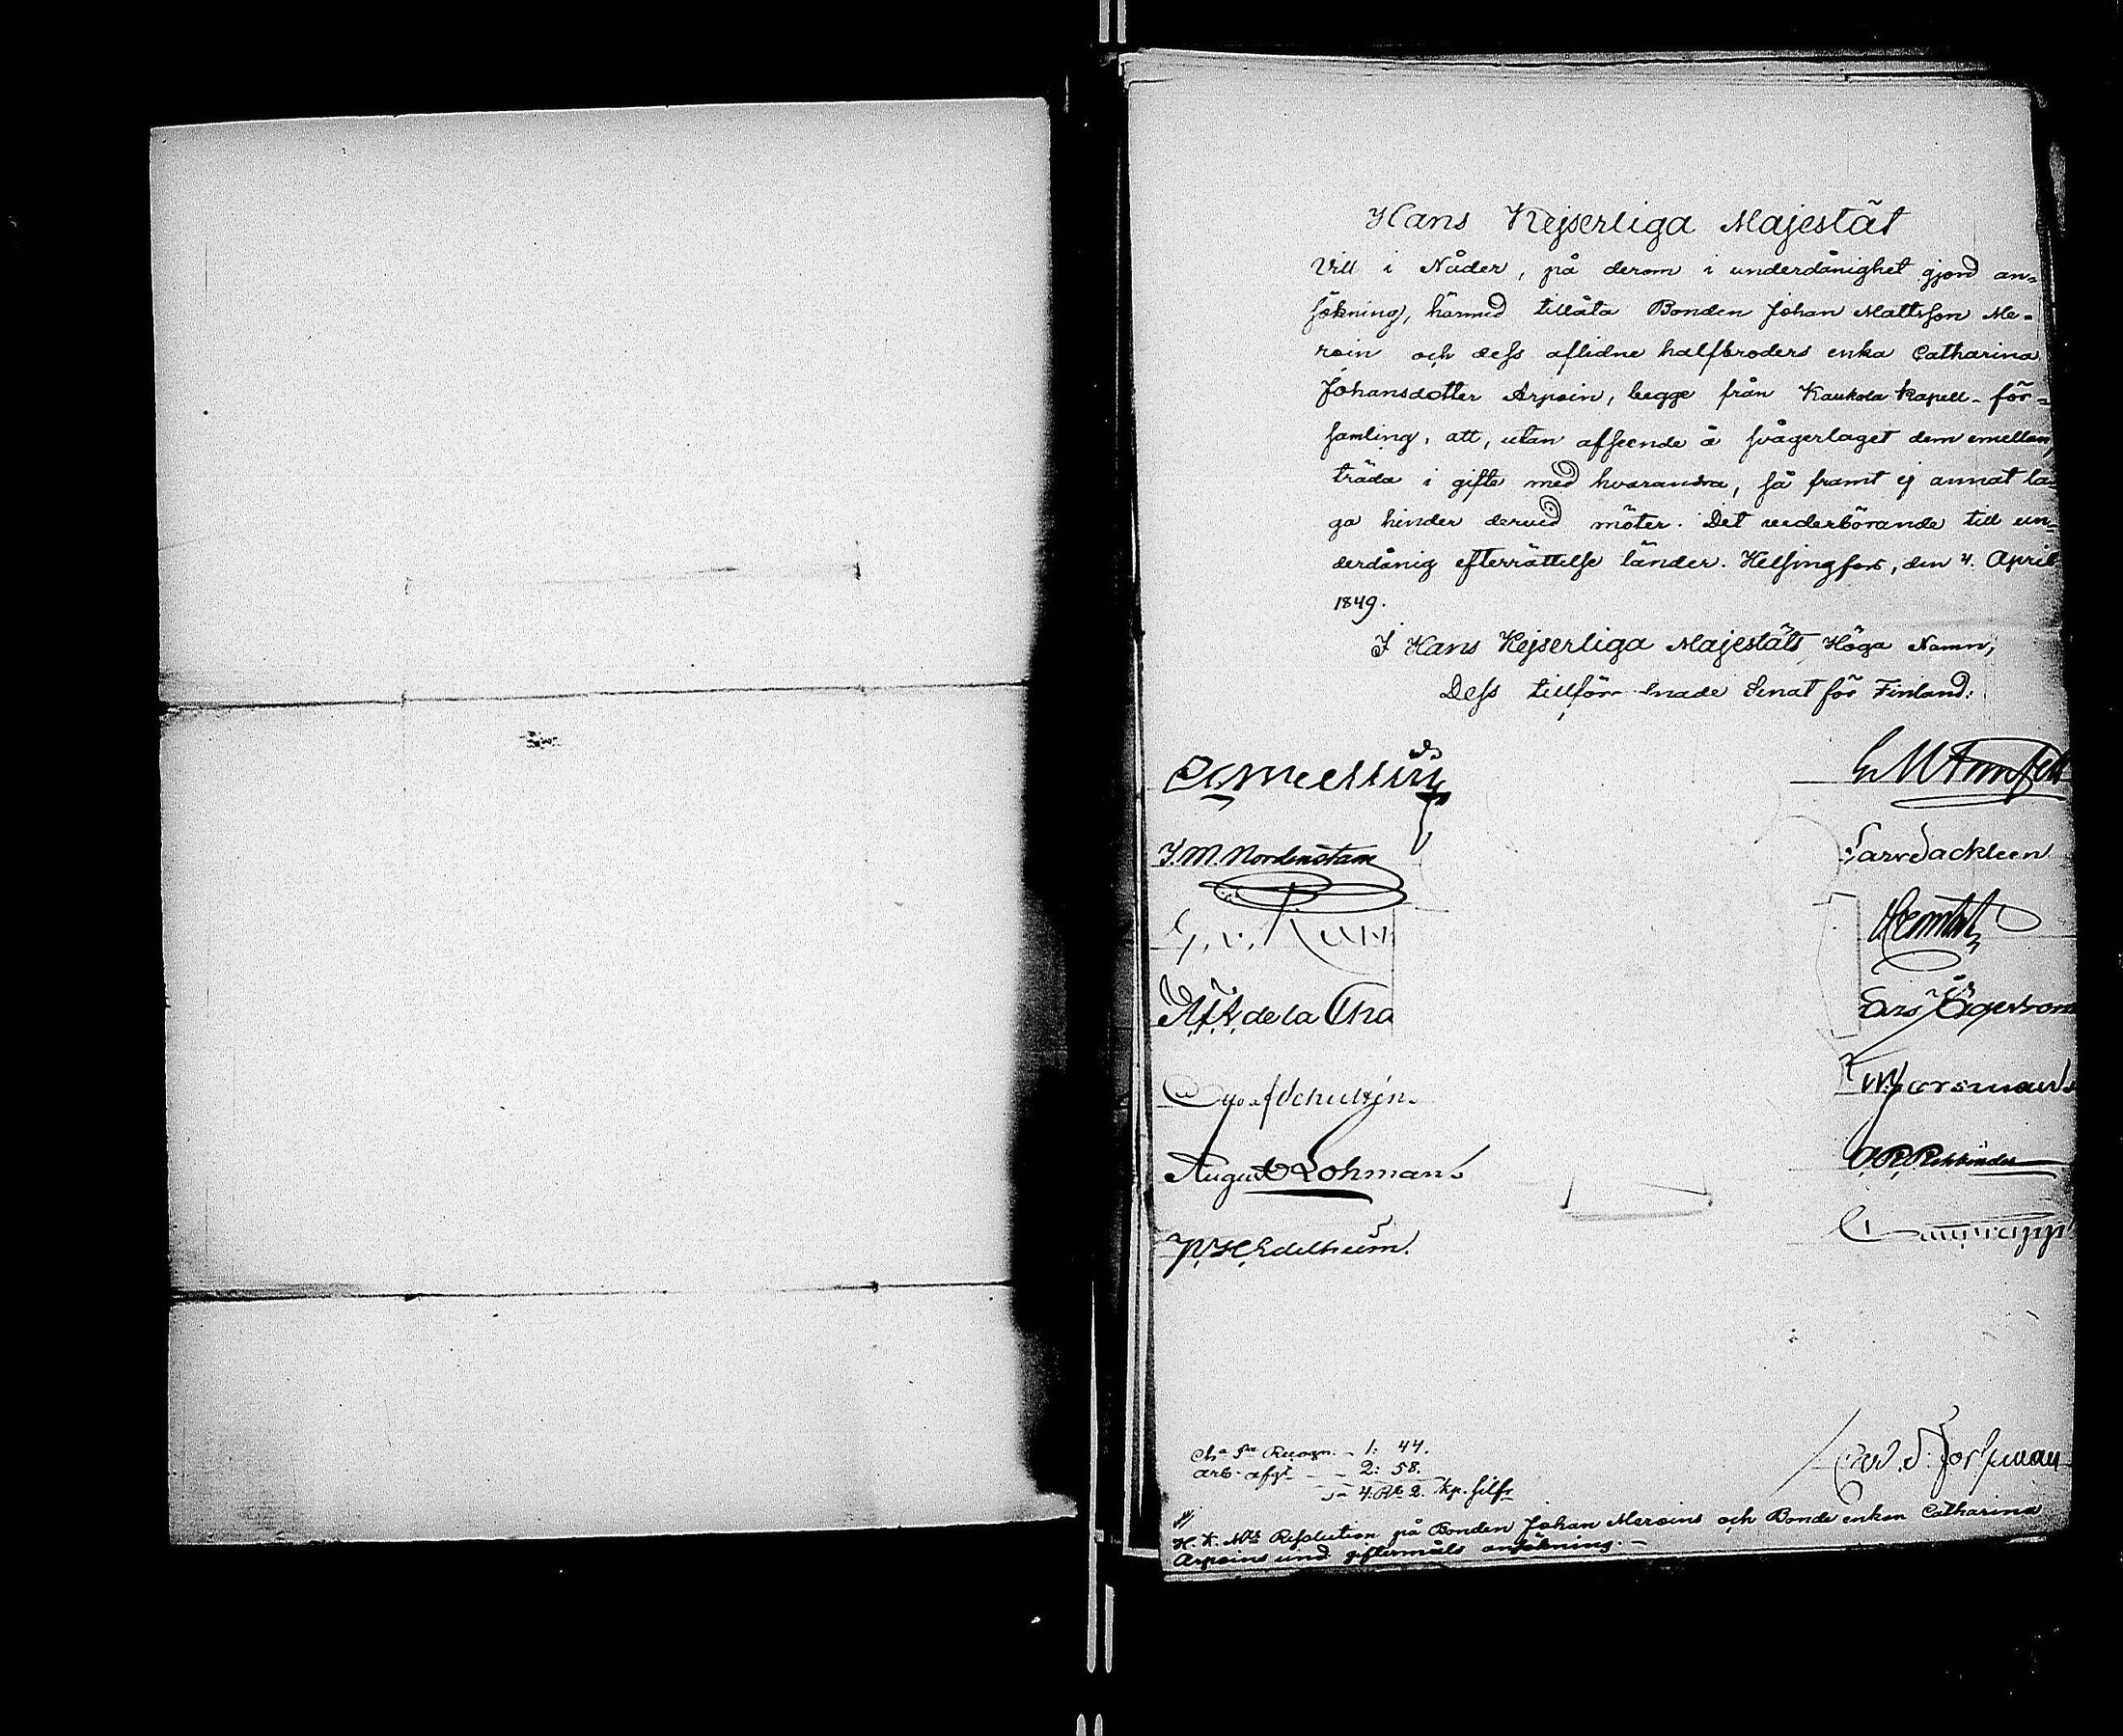 Hans Kejserliga Majestät
Vill i Nåder, på derom i underdånighet gjord an-
sökning, härmed tillåta Bonden Johan Mattsson Me-
roin och dess aflidne halfbroders enka Catharina
Johansdotter Arpoin, begge från Kaukola Kapell-för-
samling, att, utan afseende å svågerlaget dem emellan,
träda i gifte med hvarandra, så framt ej annat la-
ga hinder dervid möter. Det vederbörande till un-
derdånig efterrättelse länder. Helsingfors, den 4. April
1849.
I Hans Kejserliga Majestäts Höga Namn,
Dess tillförordnade Senat för Finland:
J. M. Nordenstam
Lars Sackleen
de la
af Schultén
August Lohman
Rehbinder
Edelheim.
Recogn. - 1: 44.
arb. afgt - - 2: 58.
4. Rb 2. kp. silfr
H. K. Mts Resolution på Bonden Johan Meroins och Bonde enkan Catharina
Arpoins und. giftermåls ansökning. -